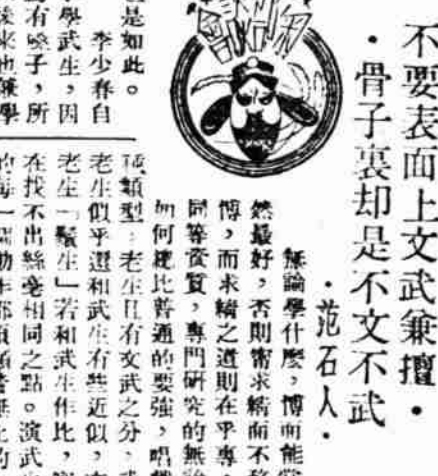 不要表面上文武兼擅·
·骨子裏却是不文不武
·范石人·
無論學什麼，博而能
然最好，否則甯求精而不務
博，而求精之道則在乎專，
同等資質，專門研究的無論
如何總比普通的要強，唱戲
類型，老生且有文武之分，武
老生似乎還和武生有些近似，
老生「鬚生」若和武生作比，實
在找不出絲毫相同之點。演武
的每一個動作都須
是如此。
李少春自
學武生，因
有嗓子，所
後來也兼學